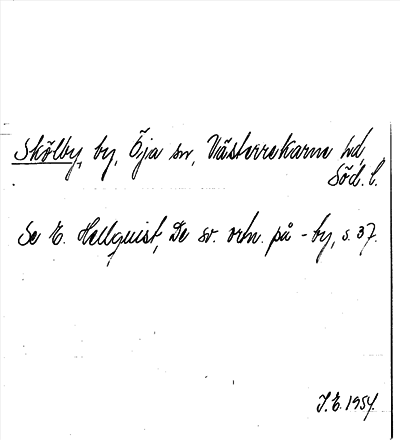 Skölby, by, Öja sn, Västerrekarne hd,
Söd. l.
Se E. Hellquist, De sv. ortn. på -by, s. 37.
J.E. 1954.